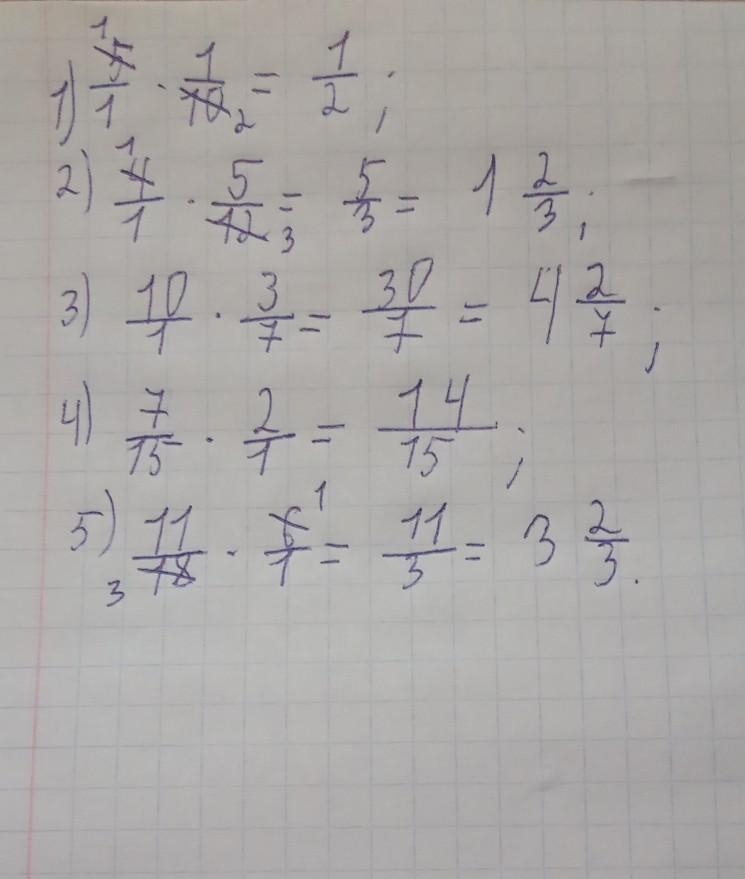 1) 5/1 · 1/10 = 1/2;
2) 4/1 · 5/12 = 5/3 = 1 2/3;
3) 10/1 · 3/7 = 30/7 = 4 2/7;
4) 7/15 · 2/1 = 14/15;
5) 11/18 · 6/1 = 11/3 = 3 2/3.